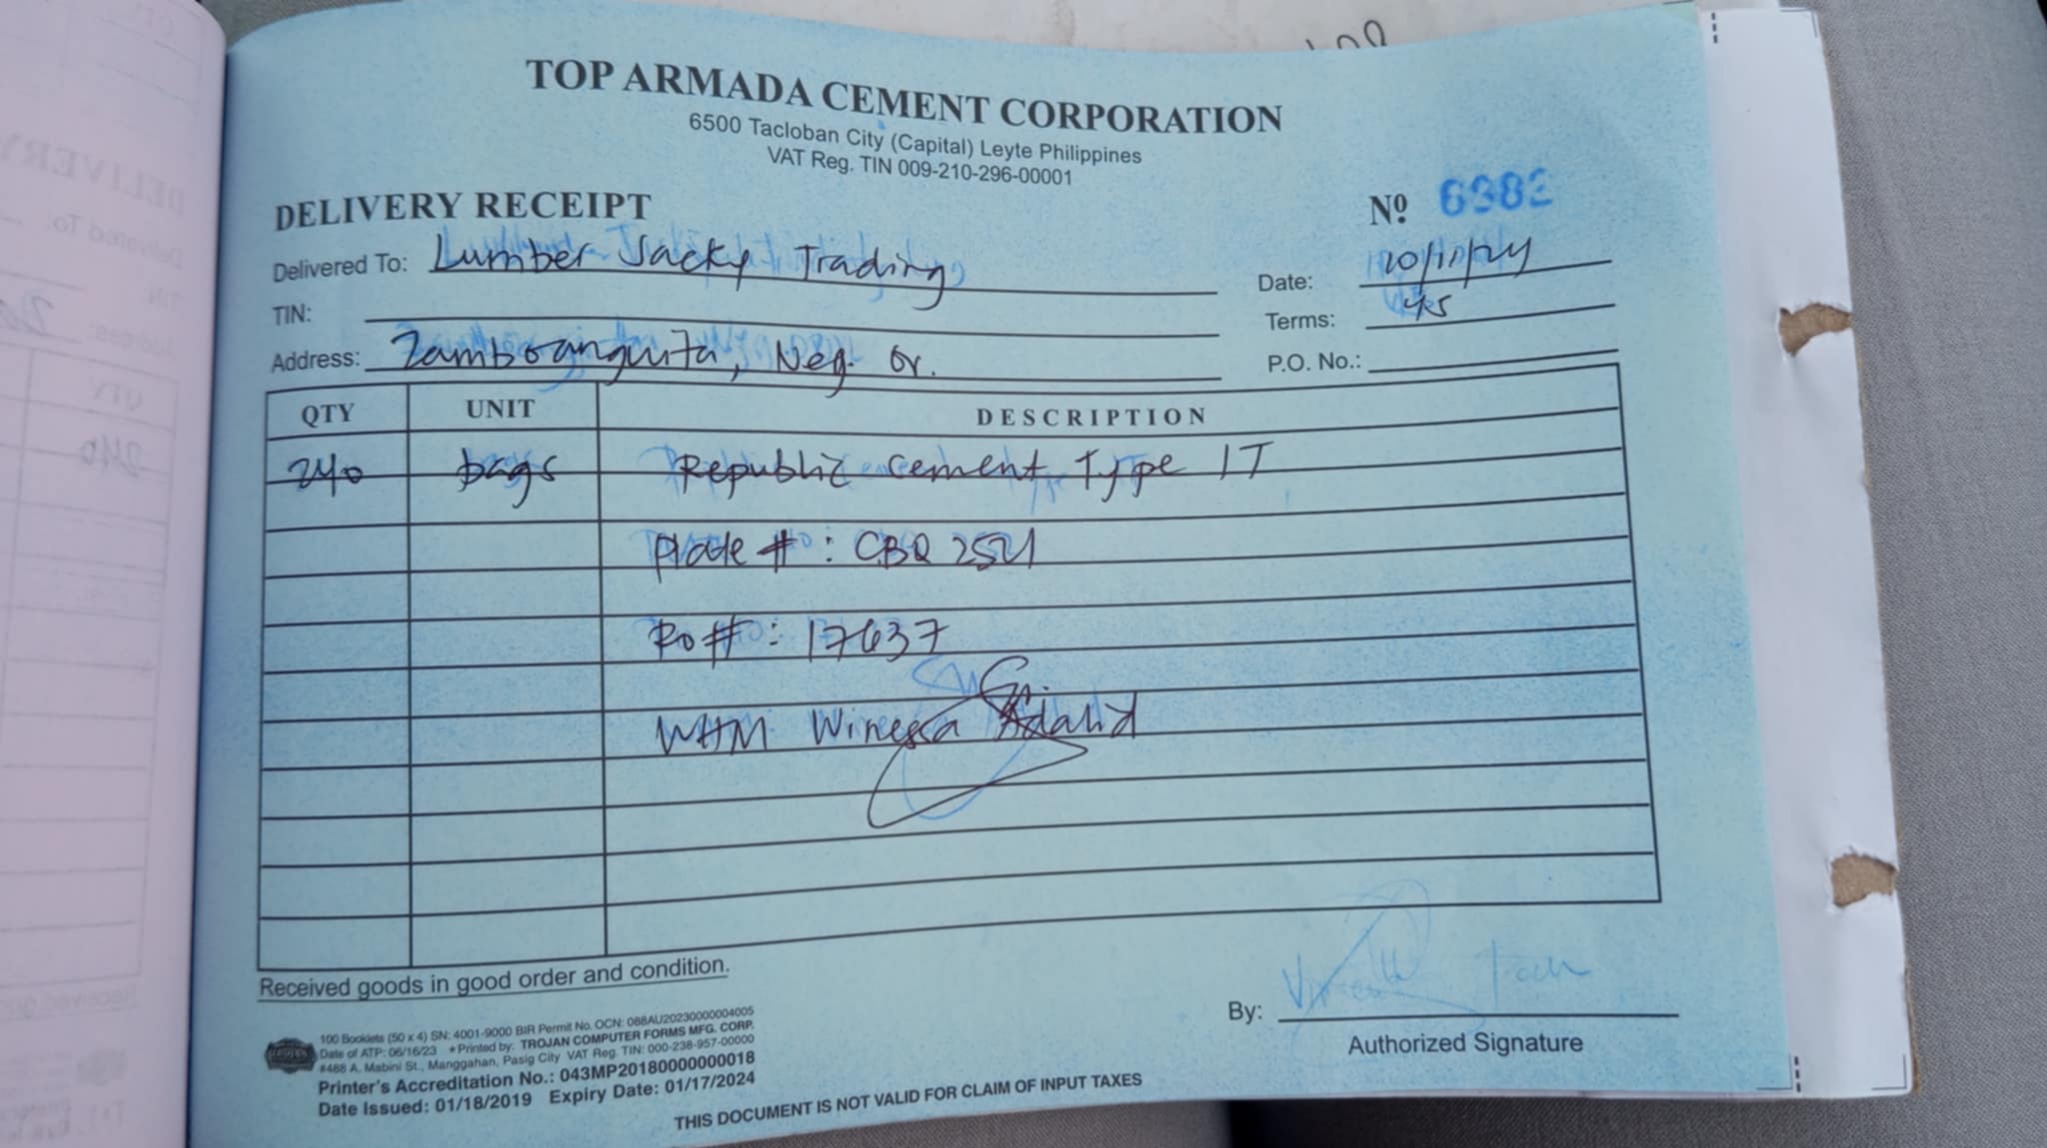 TOP ARMADA CEMENT CORPORATION
6500 Tacloban City (Capital) Leyte Philippines
VAT Reg. TIN 009-210-296-00001
DELIVERY RECEIPT
Nº 6382
Delivered To: Lumber Jacky Trading
Date: 10/11/24
TIN:
Terms: 45
Address: Zamboanguita, Neg. Or.
P.O. No.:
QTY UNIT DESCRIPTION
240 bags Republic cement Type 1T
Plate #: CBQ 2541
Po #: 17637
WHM Winessa Adalid
Received goods in good order and condition.
By:
Authorized Signature
100 Booklets (50 x 4) SN: 4001-9000 BIR Permit No. OCN: 088AU20230000004005
Date of ATP: 06/16/23 *Printed by: TROJAN COMPUTER FORMS MFG. CORP.
#488 A. Mabini St., Manggahan, Pasig City VAT Reg. TIN: 000-238-957-00000
Printer's Accreditation No.: 043MP20180000000018
Date Issued: 01/18/2019 Expiry Date: 01/17/2024
THIS DOCUMENT IS NOT VALID FOR CLAIM OF INPUT TAXES